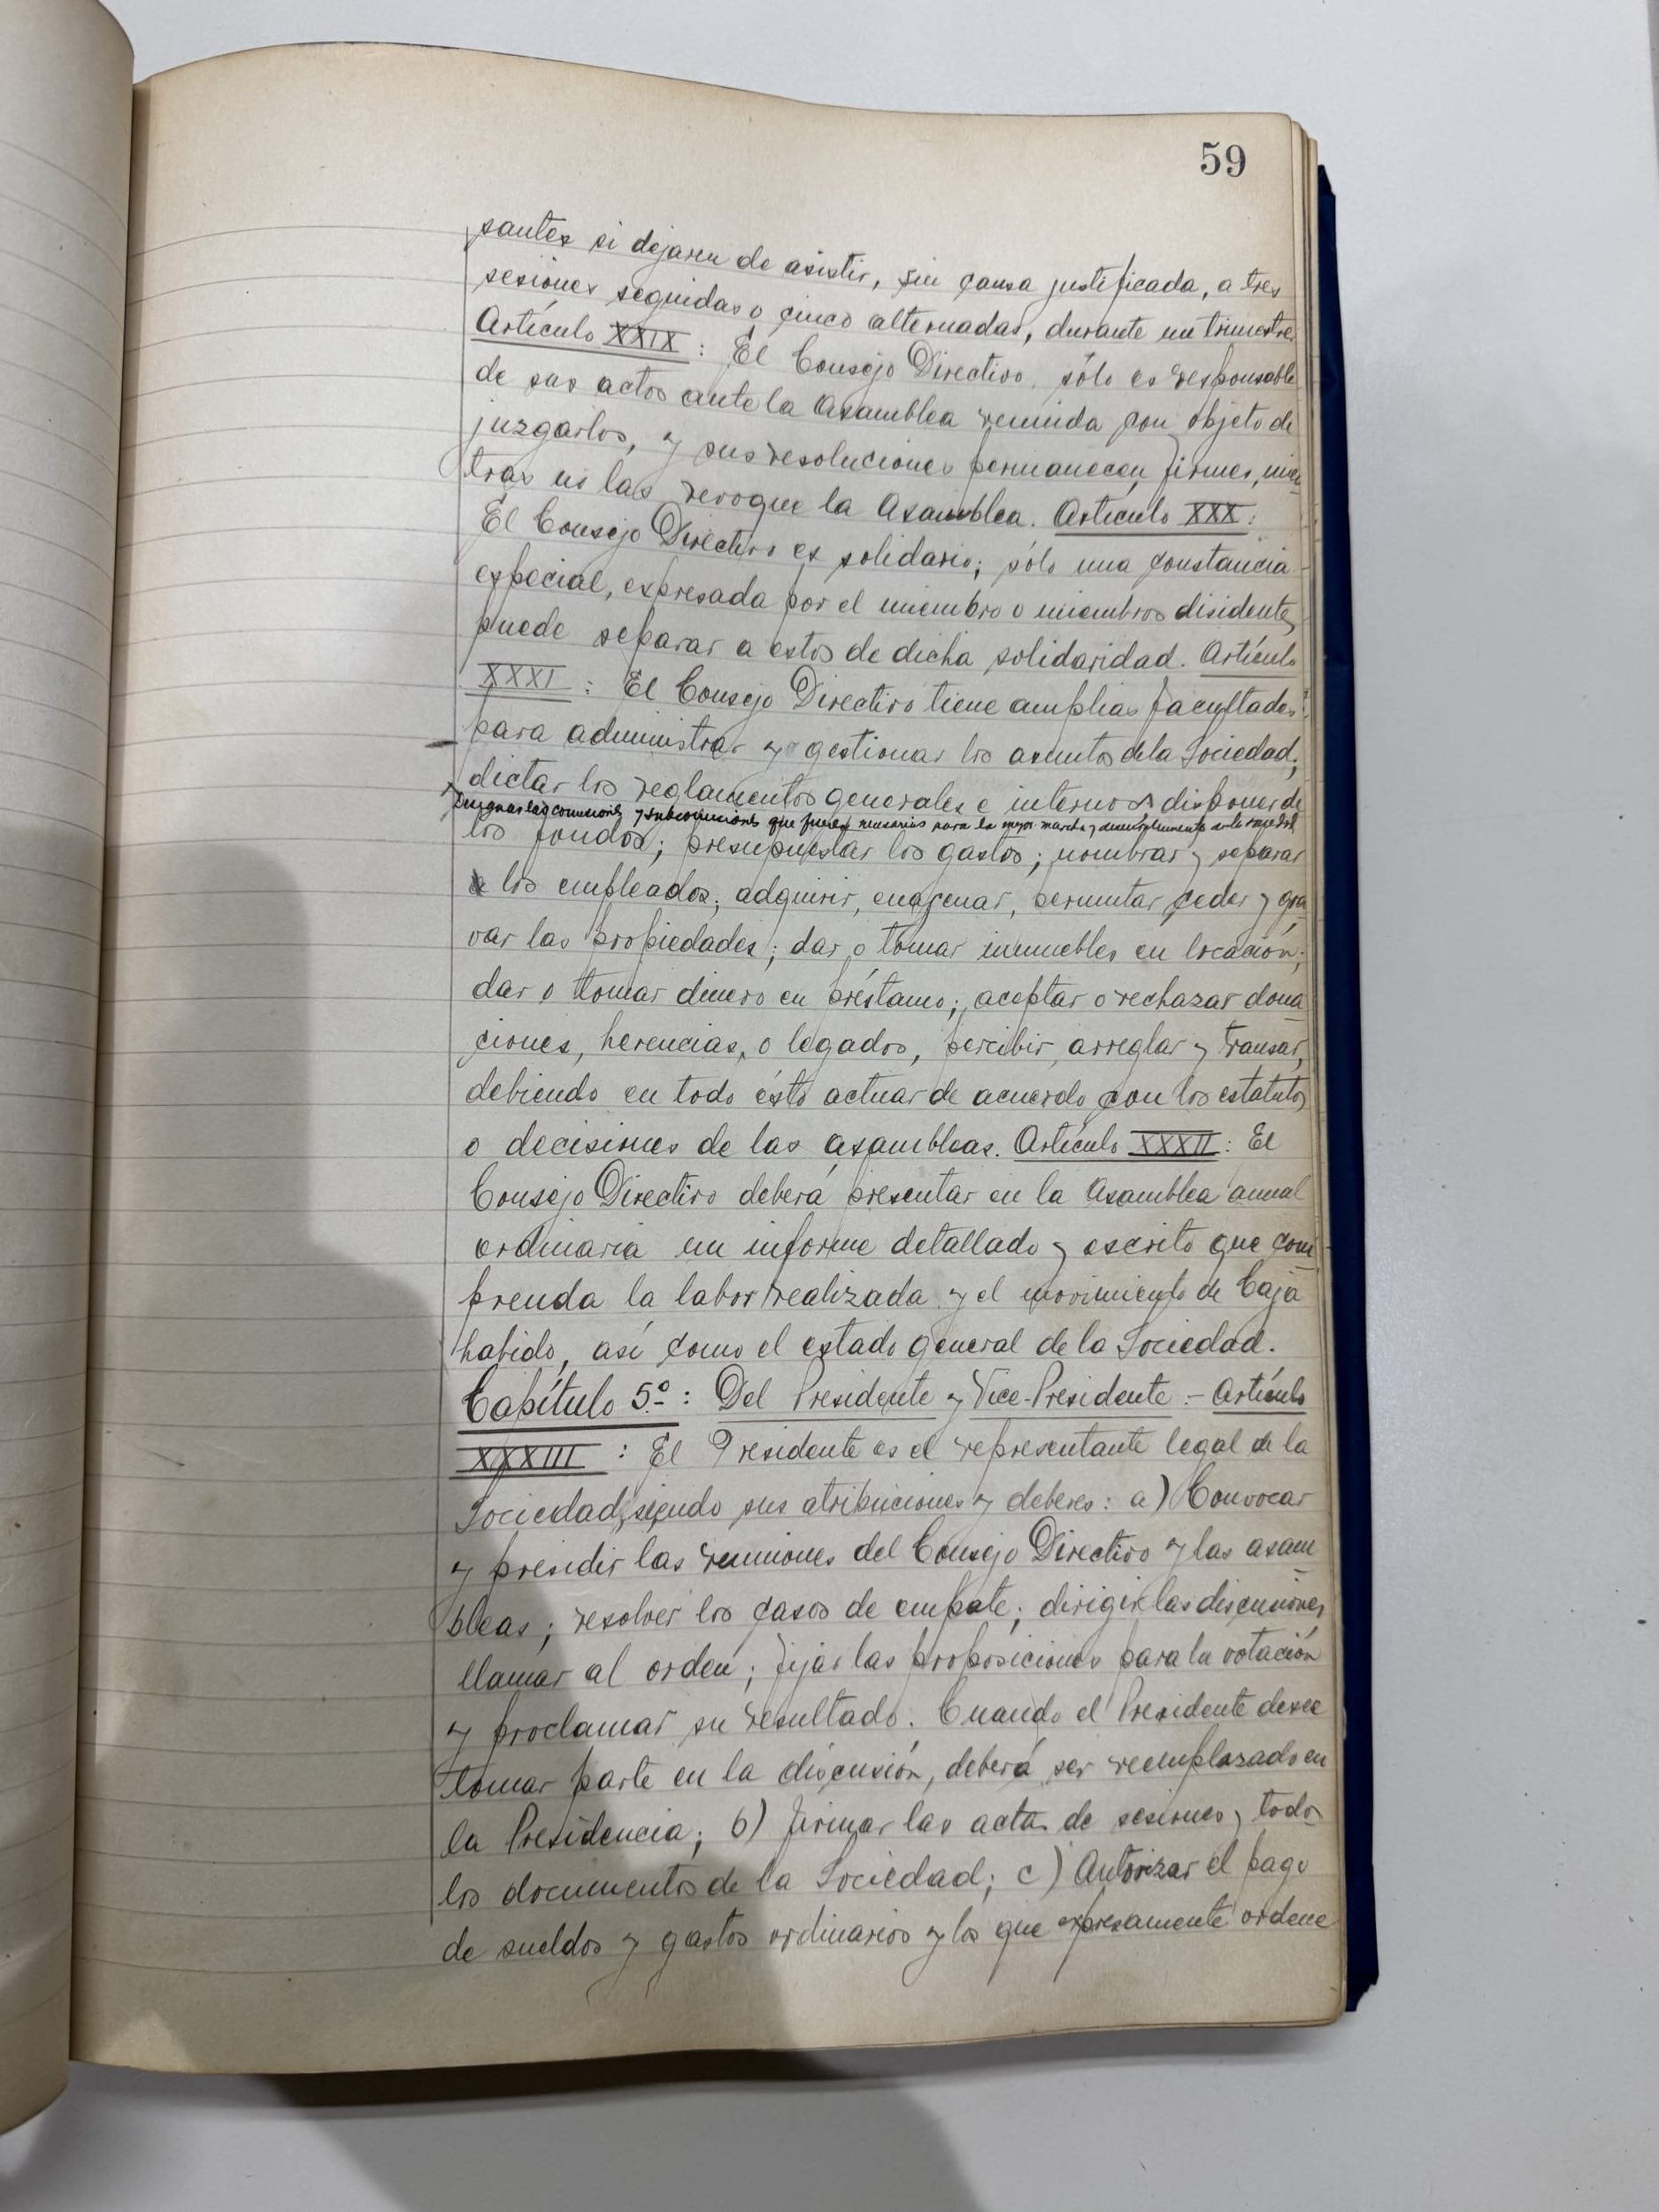 59
santes si dejaren de asistir, sin causa justificada, a tres
sesiones seguidas o cinco alternadas, durante un trimestre.
Artículo XXIX: El Consejo Directivo, sólo es responsable
de sus actos ante la Asamblea reunida con objeto de
juzgarlos, y sus resoluciones permanecen firmes, mien
tras no las revoque la Asamblea. Artículo XXX:
El Consejo Directivo es solidario; sólo una constancia
especial, expresada por el miembro o miembros disidentes
puede separar a estos de dicha solidaridad. Artículo
XXXI: El Consejo Directivo tiene amplias facultades:
para administrar y gestionar los asuntos de la Sociedad;
dictar los reglamentos generales e internos disponer de
Designar las comisiones y subcomisiones que fueren necesarias para la mejor marcha y desenvolvimiento de la sociedad
los fondos; presupuestar los gastos; nombrar y separar
a los empleados; adquirir, enagenar, permutar ceder y gra
var las propiedades; dar o tomar inmuebles en locación;
dar o tomar dinero en préstamo; aceptar o rechazar dona
ciones, herencias, o legados, percibir, arreglar y transar,
debiendo en todo ésto actuar de acuerdo con los estatutos
o decisiones de las asambleas. Artículo XXXII: El
Consejo Directivo deberá presentar en la Asamblea anual
ordinaria un informe detallado y escrito que com
prenda la labor realizada y el movimiento de Caja
habido, así como el estado general de la Sociedad.
Capítulo 5º: Del Presidente y Vice-Presidente - Artículo
XXXIII: El Presidente es el representante legal de la
Sociedad, siendo sus atribuciones y deberes: a) Convocar
y presidir las reuniones del Consejo Directivo y las asam
bleas; resolver los casos de empate; dirigir las discusiones,
llamar al orden; fijar las proposiciones para la votación
y proclamar su resultado. Cuando el Presidente desee
tomar parte en la discusión, deberá ser reemplazado en
la Presidencia; b) firmar las actas de sesiones y todos
los documentos de la Sociedad; c) Autorizar el pago
de sueldos y gastos ordinarios y los que expresamente ordene